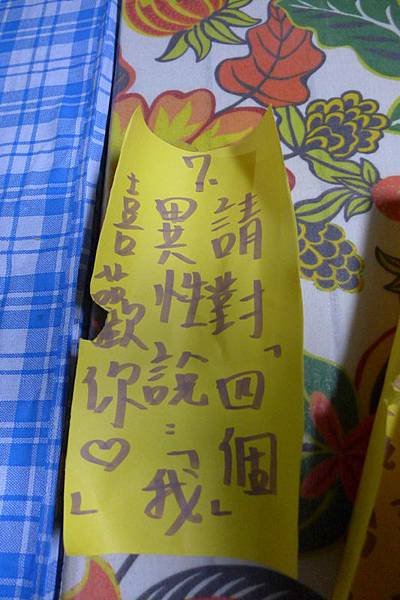 7.
請對「四個」
異性說：「我
喜歡你♡」